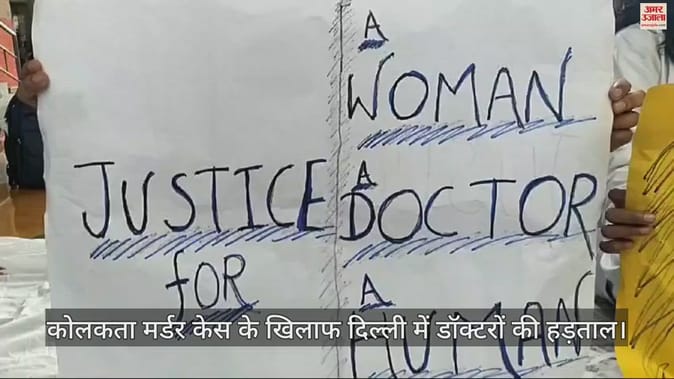 अमर उजाला
A
WOMAN
JUSTICE
FOR
A
DOCTOR
A
HUMAN
कोलकता मर्डर केस के खिलाफ दिल्ली में डॉक्टरों की हड़ताल।